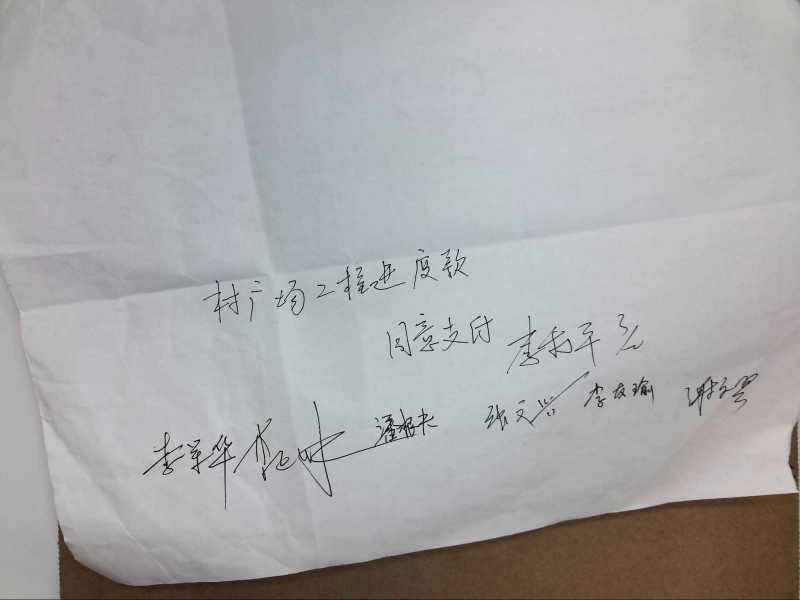 村广场工程进度款
同意支付 李和平
李军华 潘根夫 张文兴 李友瑜